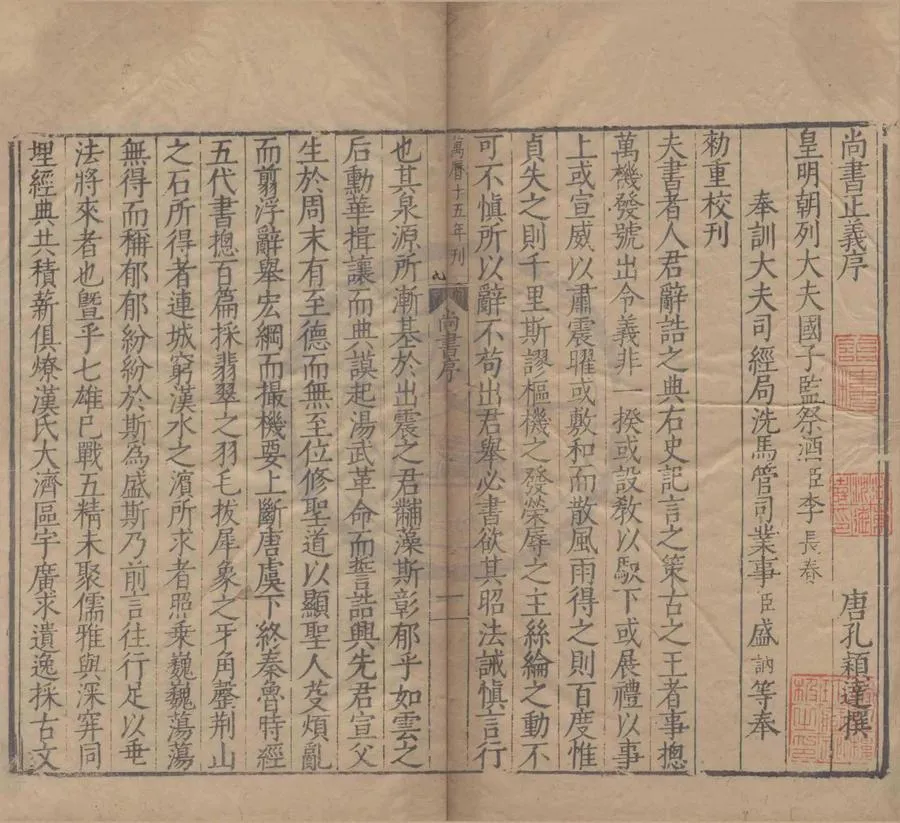 尚書正義序
唐孔穎達撰
皇明朝列大夫國子監祭酒臣李長春
奉訓大夫司經局洗馬管司業事臣盛訥等奉
勑重校刊
夫書者人君辭誥之典右史記言之策古之王者事揔
萬機發號出令義非一揆或設敎以馭下或展禮以事
上或宣威以肅震曜或敷和而散風雨得之則百度惟
貞失之則千里斯謬樞機之發榮辱之主絲綸之動不
可不愼所以辭不苟出君舉必書欲其昭法誡愼言行
萬曆十五年刊
尚書序
一
也其泉源所漸基於出震之君黼藻斯彰郁乎如雲之
后勳華揖讓而典謨起湯武革命而誓誥興先君宣父
生於周末有至德而無至位修聖道以顯聖人芟煩亂
而翦浮辭舉宏綱而撮機要上斷唐虞下終秦魯時經
五代書揔百篇採翡翠之羽毛拔犀象之牙角罄荆山
之石所得者連城窮漢水之濱所求者照乗巍巍蕩蕩
無得而稱郁郁紛紛於斯爲盛斯乃前言往行足以垂
法將來者也曁乎七雄已戰五精未聚儒雅與深穽同
埋經典共積薪俱燎漢氏大濟區宇廣求遺逸採古文